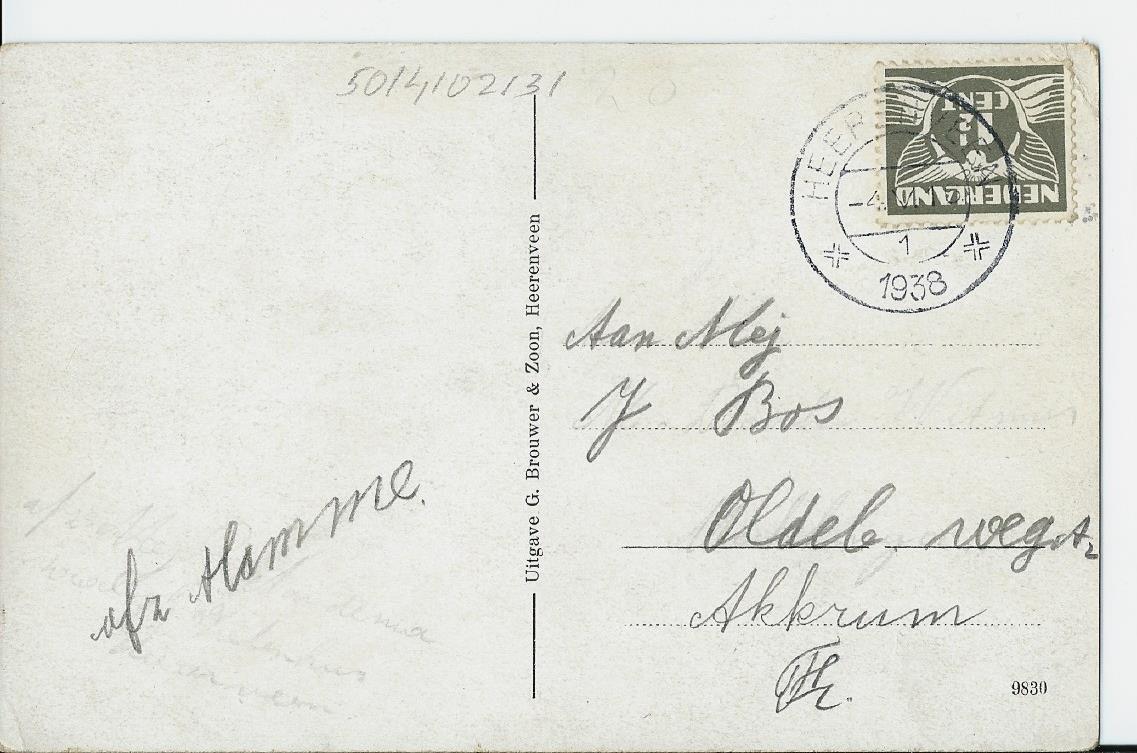 5014102131
20
NEDERLAND
1½
CENT
HEERENVEEN
-4. VI.
1
1938
Uitgave G. Brouwer & Zoon, Heerenveen
Aan Mej
J Bos
Oldeb. weg
Akkrum
Fr.
afz Mamme.
9830